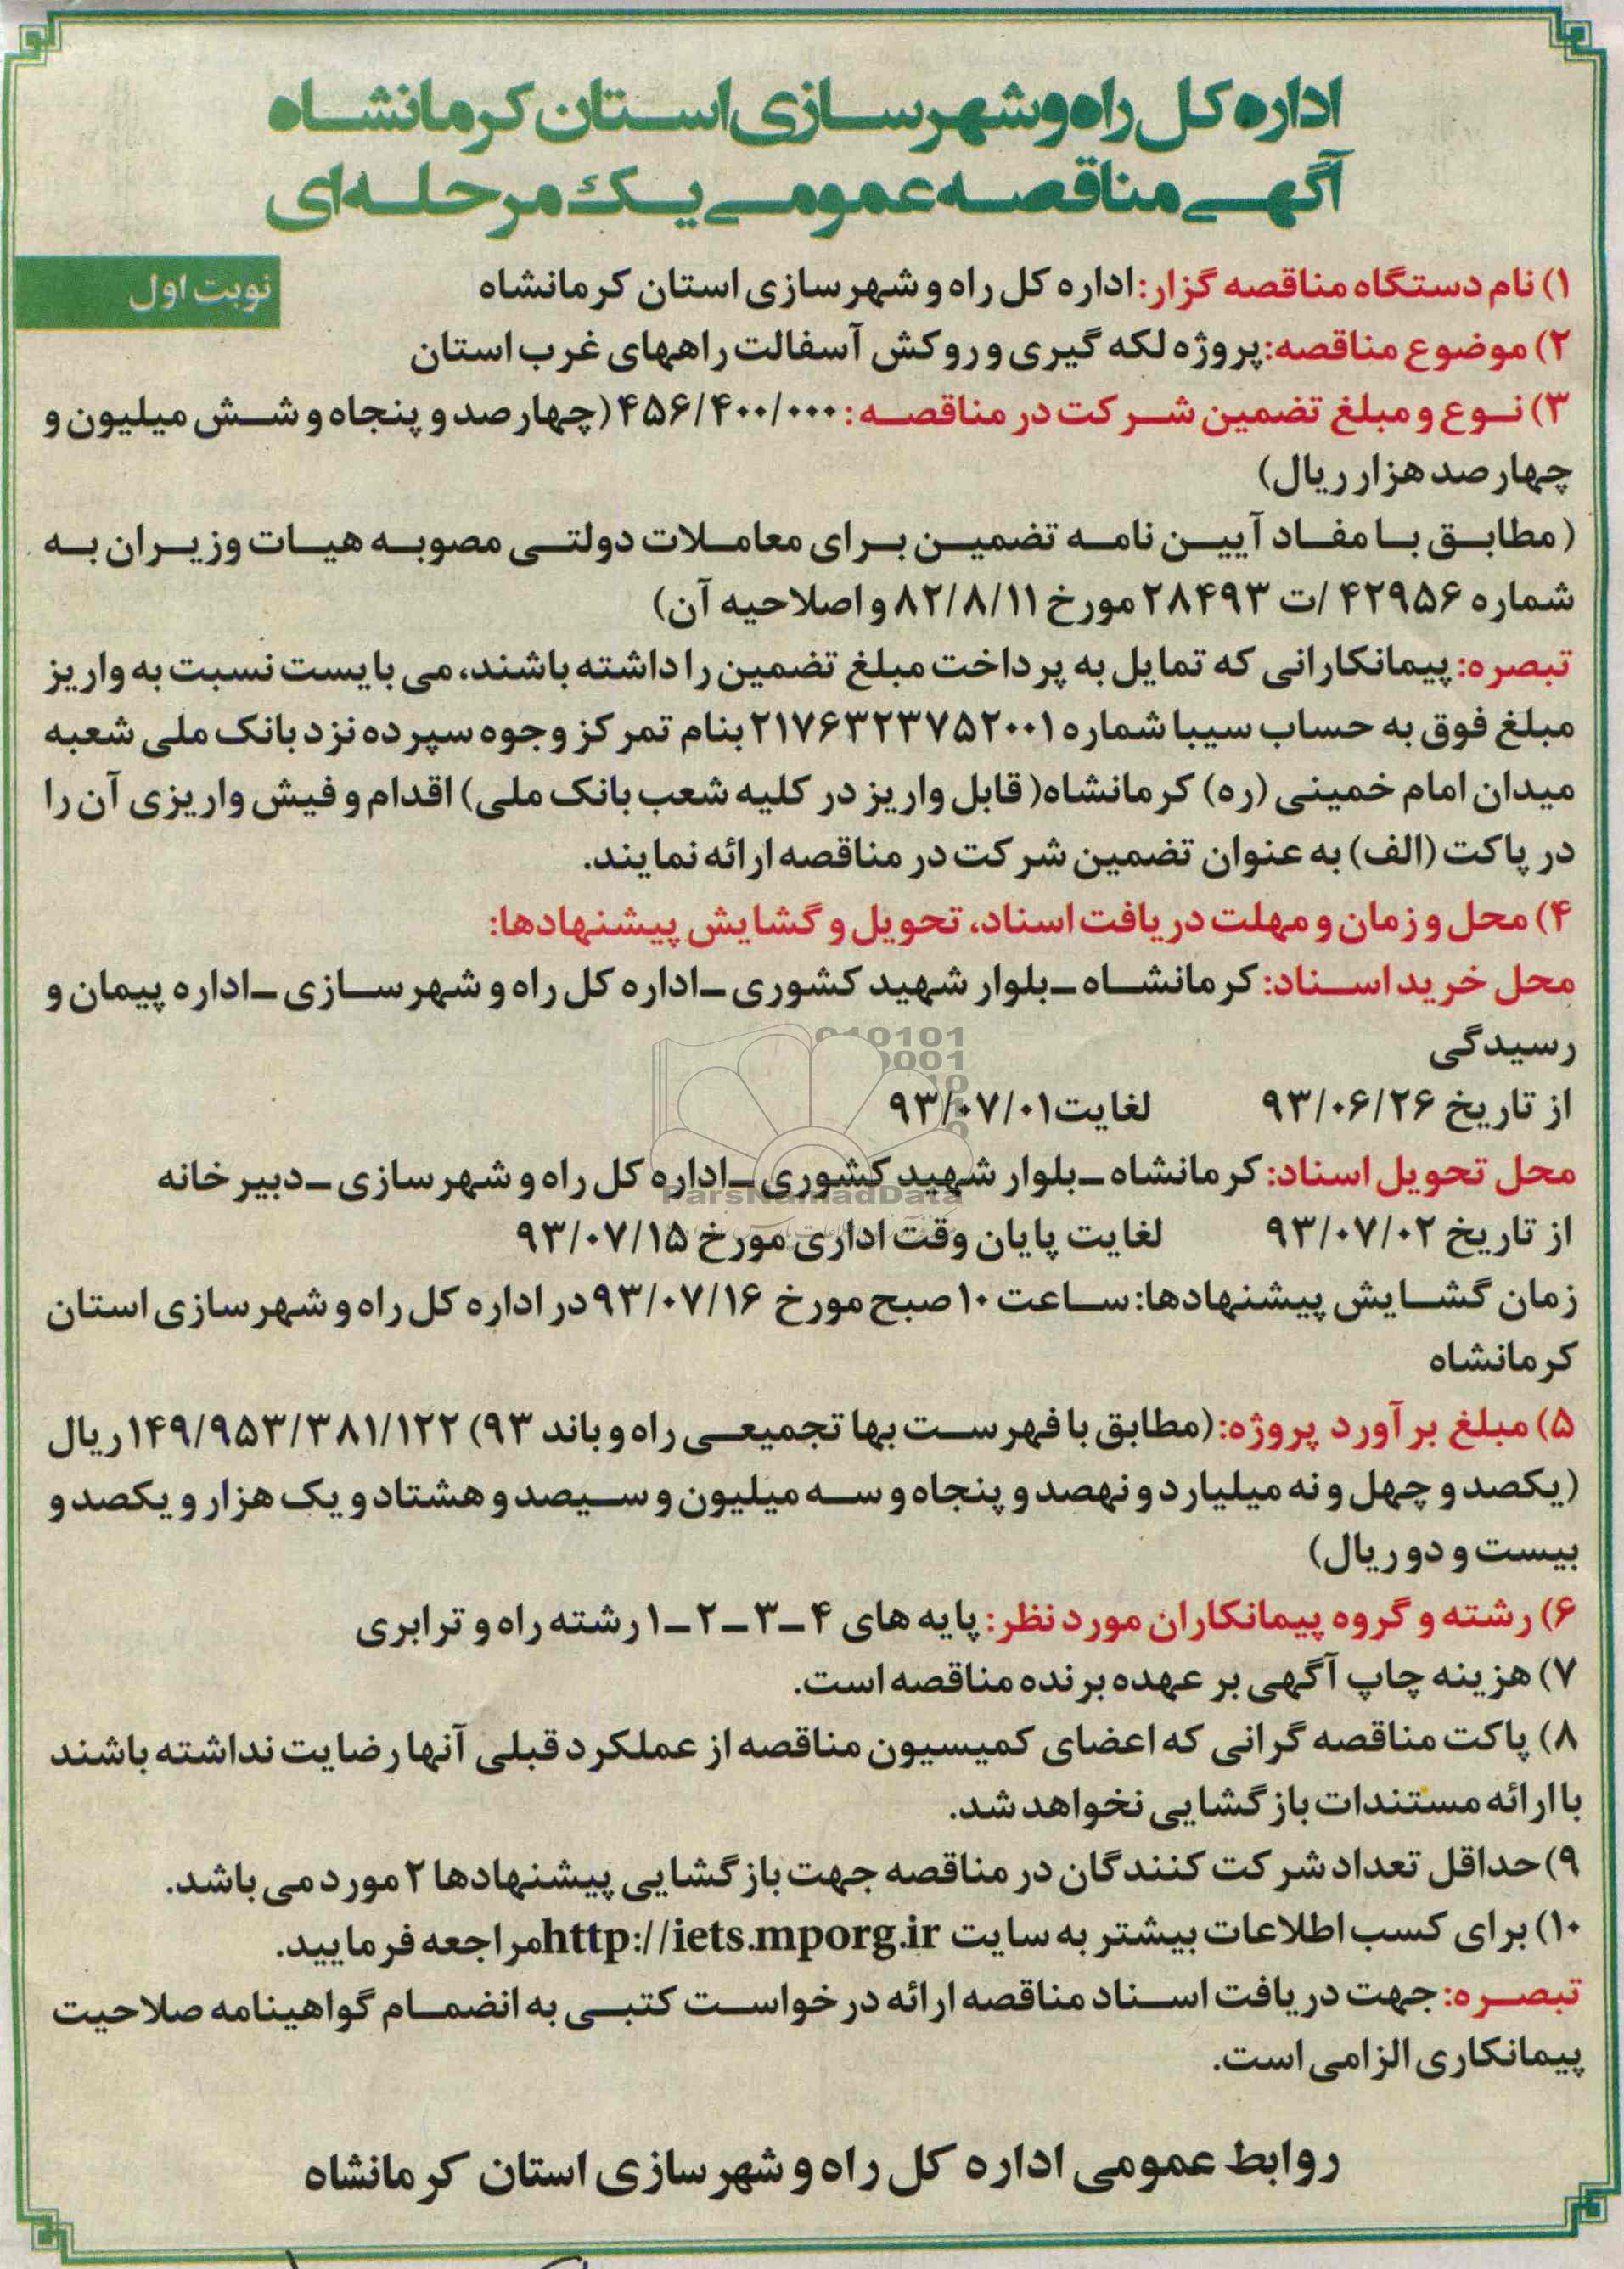 اداره کل راه و شهرسازی استان کرمانشاه
آگهی مناقصه عمومی یک مرحله‌ای
نوبت اول
۱) نام دستگاه مناقصه گزار: اداره کل راه و شهرسازی استان کرمانشاه
۲) موضوع مناقصه: پروژه لکه گیری و روکش آسفالت راههای غرب استان
۳) نوع و مبلغ تضمین شرکت در مناقصه: ۴۵۶/۴۰۰/۰۰۰ (چهارصد و پنجاه و شش میلیون و
چهارصد هزار ریال)
(مطابق با مفاد آیین نامه تضمین برای معاملات دولتی مصوبه هیات وزیران به
شماره ۴۲۹۵۶ /ت ۲۸۴۹۳ مورخ ۸۲/۸/۱۱ و اصلاحیه آن)
تبصره: پیمانکارانی که تمایل به پرداخت مبلغ تضمین را داشته باشند، می بایست نسبت به واریز
مبلغ فوق به حساب سیبا شماره ۲۱۷۶۳۲۳۷۵۲۰۰۱ بنام تمرکز وجوه سپرده نزد بانک ملی شعبه
میدان امام خمینی (ره) کرمانشاه( قابل واریز در کلیه شعب بانک ملی) اقدام و فیش واریزی آن را
در پاکت (الف) به عنوان تضمین شرکت در مناقصه ارائه نمایند.
۴) محل و زمان و مهلت دریافت اسناد، تحویل و گشایش پیشنهادها:
محل خرید اسناد: کرمانشاه ـ بلوار شهید کشوری ـ اداره کل راه و شهرسازی ـ اداره پیمان و
رسیدگی
از تاریخ ۹۳/۰۶/۲۶ لغایت ۹۳/۰۷/۰۱
محل تحویل اسناد: کرمانشاه ـ بلوار شهید کشوری ـ اداره کل راه و شهرسازی ـ دبیرخانه
ParsNamadData
از تاریخ ۹۳/۰۷/۰۲ لغایت پایان وقت اداری مورخ ۹۳/۰۷/۱۵
زمان گشایش پیشنهادها: ساعت ۱۰ صبح مورخ ۹۳/۰۷/۱۶ در اداره کل راه و شهرسازی استان
کرمانشاه
۵) مبلغ برآورد پروژه: (مطابق با فهرست بها تجمیعی راه و باند ۹۳) ۱۴۹/۹۵۳/۳۸۱/۱۲۲ ریال
(یکصد و چهل و نه میلیارد و نهصد و پنجاه و سه میلیون و سیصد و هشتاد و یک هزار و یکصد و
بیست و دو ریال)
۶) رشته و گروه پیمانکاران مورد نظر: پایه های ۴ـ۳ـ۲ـ۱ رشته راه و ترابری
۷) هزینه چاپ آگهی بر عهده برنده مناقصه است.
۸) پاکت مناقصه گرانی که اعضای کمیسیون مناقصه از عملکرد قبلی آنها رضایت نداشته باشند
با ارائه مستندات بازگشایی نخواهد شد.
۹) حداقل تعداد شرکت کنندگان در مناقصه جهت بازگشایی پیشنهادها ۲ مورد می باشد.
۱۰) برای کسب اطلاعات بیشتر به سایت http://iets.mporg.ir مراجعه فرمایید.
تبصره: جهت دریافت اسناد مناقصه ارائه درخواست کتبی به انضمام گواهینامه صلاحیت
پیمانکاری الزامی است.
روابط عمومی اداره کل راه و شهرسازی استان کرمانشاه